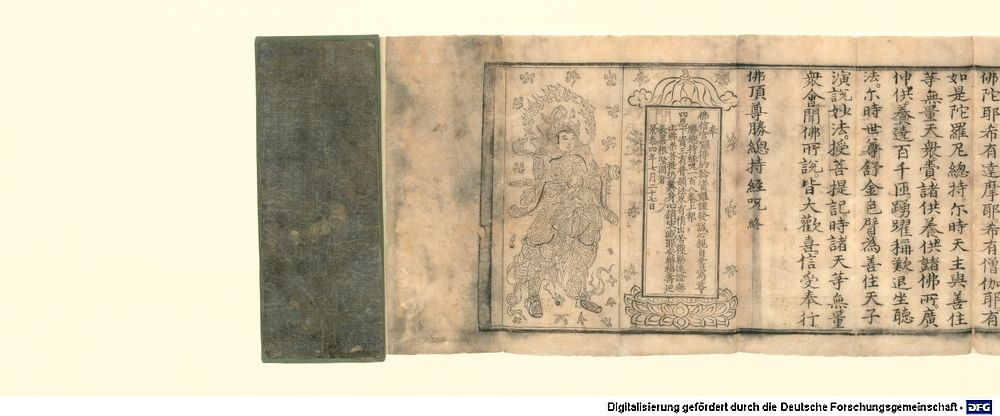 佛陀耶布有達摩耶布有僧伽耶有
如是陀羅尼總持尒時天主與善住
等無量天衆賫諸供養供諸佛所廣
伸供養遶百千匝踴躍稱歎退坐聽
法尒時世尊舒金色臂為善住天子
演說妙法授菩提記時諸天等無量
衆會聞佛所說皆大歡喜信受奉行
佛頂尊勝總持經呪 終
奉
景泰四年七月二十七日
Digitalisierung gefördert durch die Deutsche Forschungsgemeinschaft -
DFG